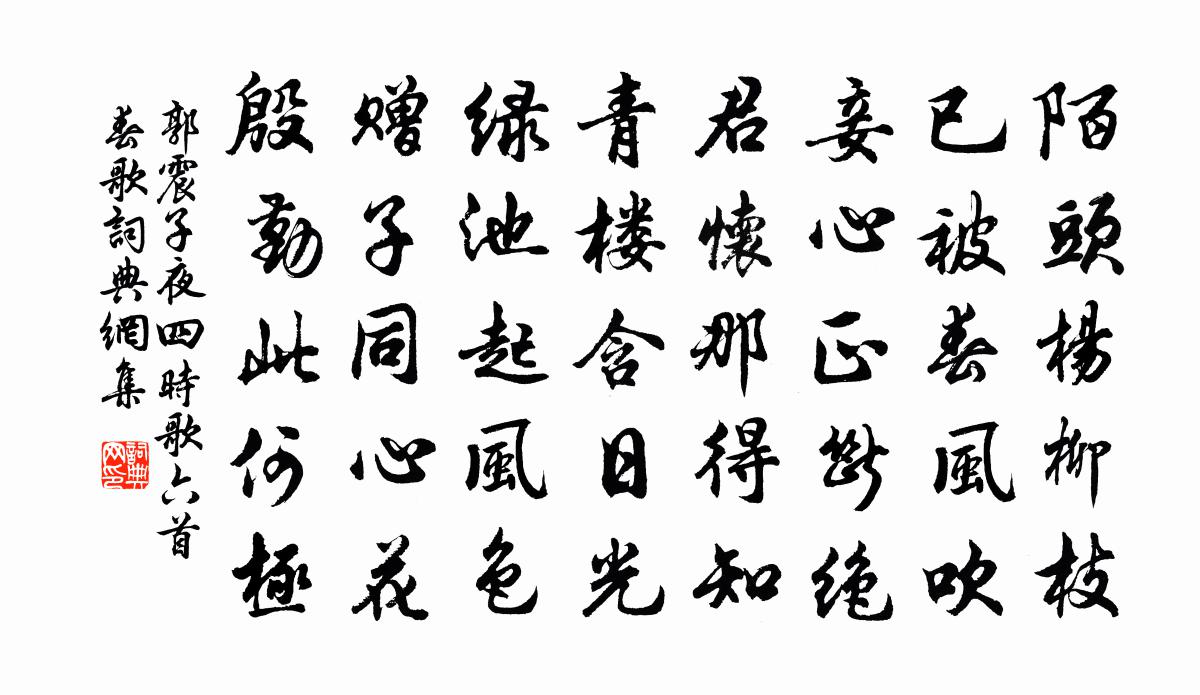 陌頭楊柳枝
已被春風吹
妾心正斷絕
君懷那得知
青楼含日光
绿池起風色
赠子同心花
殷勤此何極
郭震子夜四時歌六首
春歌詞典網集
詞典网印